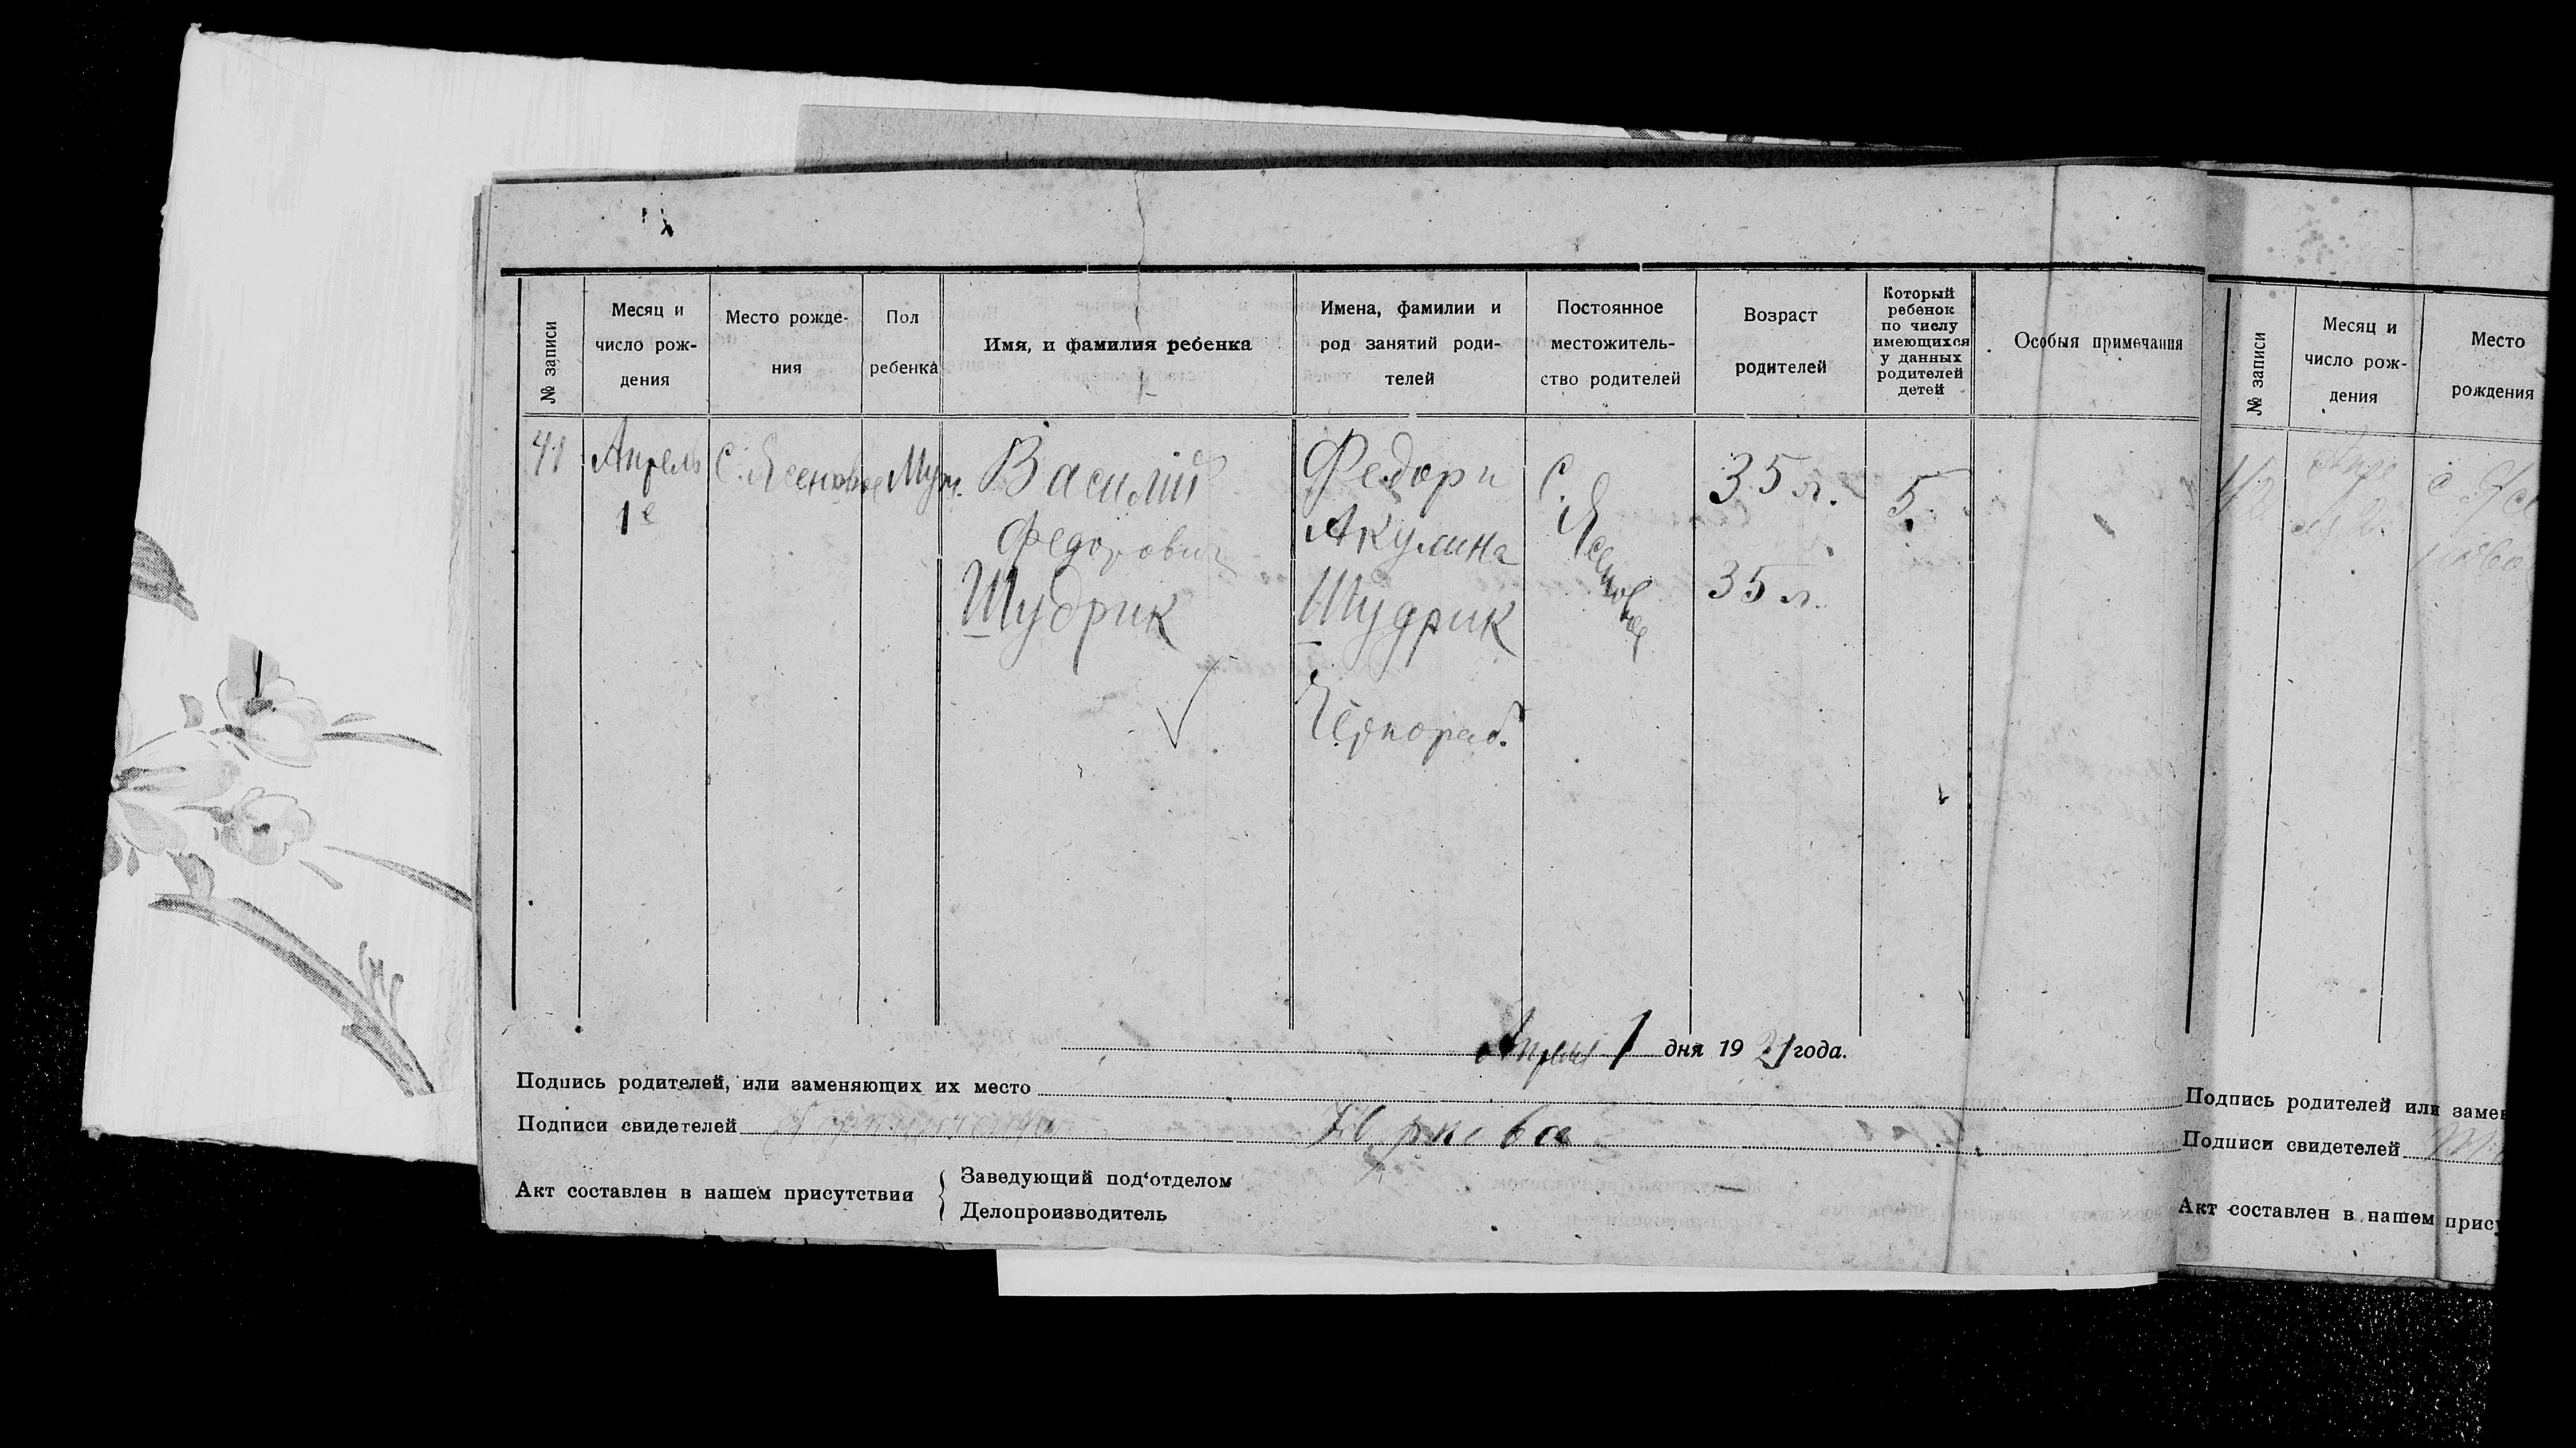 № записи
Месяц и
число рож-
дения
Место рожде-
ния
Пол
ребенка
Имя, и фамилия ребенка
Имена, фамилии и
род занятий роди-
телей
Постоянное
местожитель-
ство родителей
Возраст
родителей
Который
ребенок
по числу
имеющихся
у данных
родителей
детей
Особыя примечания
41
Апрель
1е
с. Ясеновое
Муж.
Василий
Федорович
Шудрик
Федор и
Акулина
Шудрик
Чернораб.
с.
Ясеновое
35 л.
35 л.
5
Апреля 1 дня 1921 года.
Подпись родителей, или заменяющих их место
Подписи свидетелей
Юркова
Акт составлен в нашем присутствии
Заведующий под‘отделом
Делопроизводитель
№ записи
Месяц и
число рож-
дения
Место
рождения
Апре
2
с Ясе
Подпись родителей или замен
Подписи свидетелей
Акт составлен в нашем прису